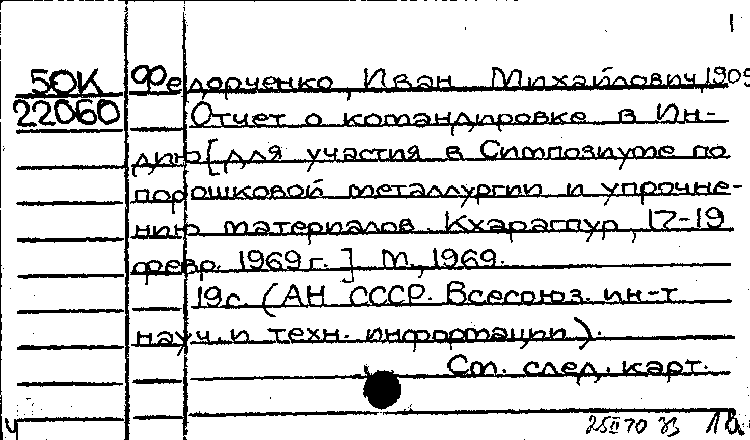 1
50К Федорченко, Иван Михайлович, 1909
22060 Отчет о командировке в Ин-
дию [для участия в Симпозиуме по
порошковой металлургии и упрочне-
нию материалов. Кхарагпур, 17-19
февр. 1969 г.] М., 1969.
19с. (АН СССР. Всесоюз. ин-т
науч. и техн. информации).
См. след. карт.
Ч 25II70